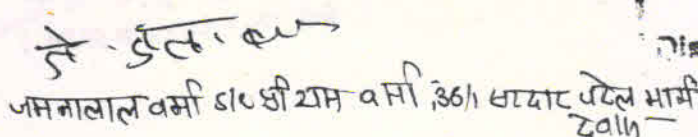 जे. एल. वर्मा
जमनालाल वर्मा S/o श्री राम वर्मा, 36/1 सरदार पटेल मार्ग